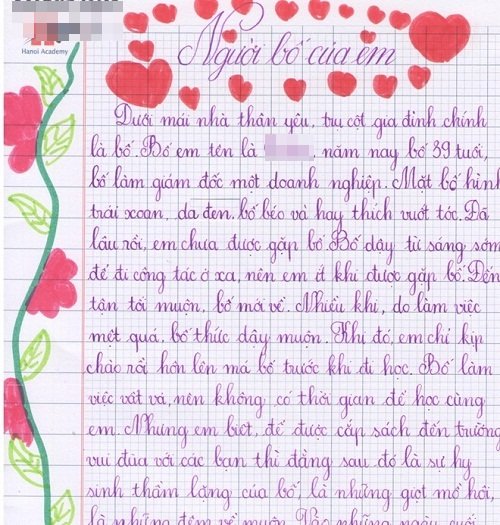 Hanoi Academy
Người bố của em
Dưới mái nhà thân yêu, trụ cột gia đình chính
là bố. Bố em tên là , năm nay bố 39 tuổi,
bố làm giám đốc một doanh nghiệp. Mặt bố hình
trái xoan, da đen, bố béo và hay thích vuốt tóc. Đã
lâu rồi, em chưa được gặp bố. Bố dậy từ sáng sớm
để đi công tác ở xa, nên em ít khi được gặp bố. Đến
tận tối muộn, bố mới về. Nhiều khi, do làm việc
mệt quá, bố thức dậy muộn. Khi đó, em chỉ kịp
chào rồi hôn lên má bố trước khi đi học. Bố làm
việc vất vả, nên không có thời gian để học cùng
em. Nhưng em biết, để được cắp sách đến trường
vui đùa với các bạn thì đằng sau đó là sự hy
sinh thầm lặng của bố, là những giọt mồ hôi,
là những đêm về muộn. Vào những ngày cuối